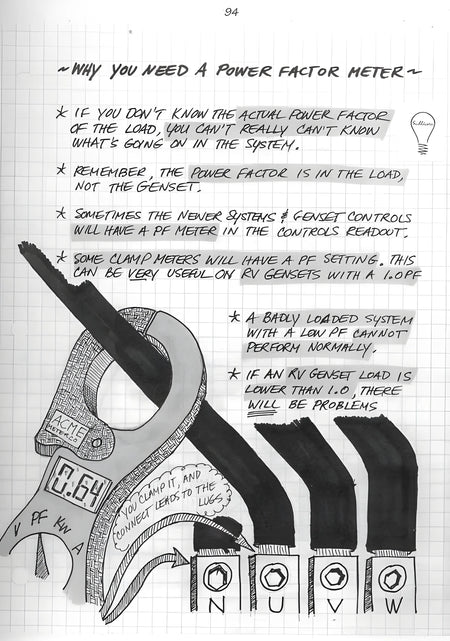 94
~WHY YOU NEED A POWER FACTOR METER~
* IF YOU DON'T KNOW THE ACTUAL POWER FACTOR
OF THE LOAD, YOU CAN'T REALLY CAN'T KNOW
WHAT'S GOING ON IN THE SYSTEM.
* REMEMBER, THE POWER FACTOR IS IN THE LOAD,
NOT THE GENSET.
* SOMETIMES THE NEWER SYSTEMS & GENSET CONTROLS
WILL HAVE A PF METER IN THE CONTROLS READOUT.
* SOME CLAMP METERS WILL HAVE A PF SETTING. THIS
CAN BE VERY USEFUL ON RV GENSETS WITH A 1.0PF
* A BADLY LOADED SYSTEM
WITH A LOW PF CANNOT
PERFORM NORMALLY.
* IF AN RV GENSET LOAD IS
LOWER THAN 1.0, THERE
WILL BE PROBLEMS
ACME
METER CO
0.64
V PF KW A
YOU CLAMP IT, AND
CONNECT LEADS TO THE
LUGS
N U V W